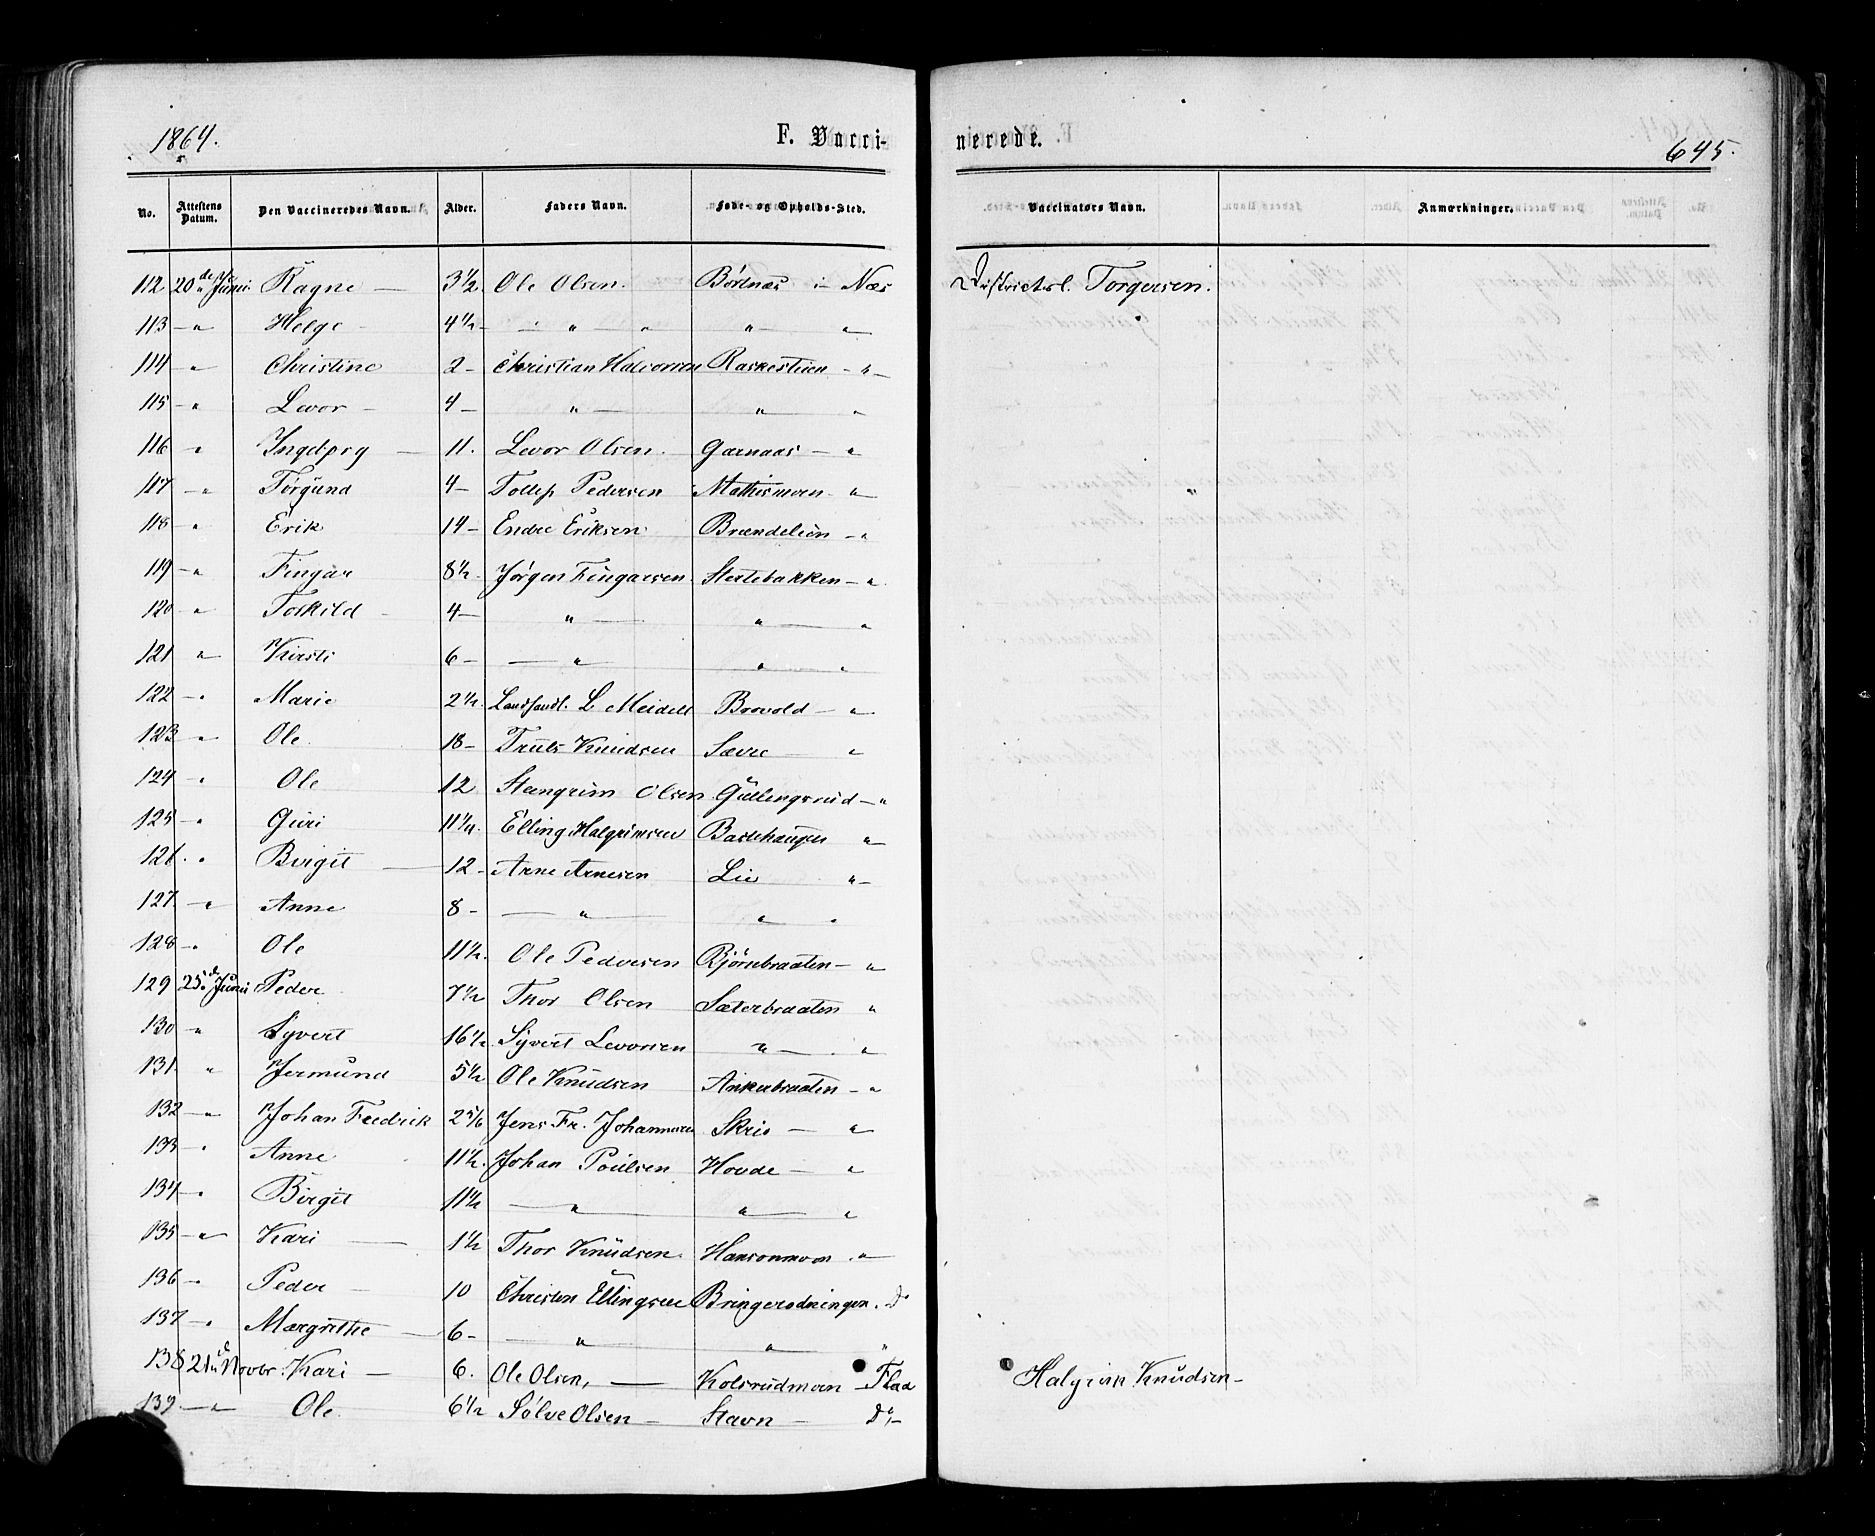 1864.
F. Vacci-
nerede.
645.
No. Attestens Datum. Den Vaccineredes Navn. Alder. Faders Navn. Føde- og Opholds-Sted. Vaccinators Navn. Anmærkninger.
112 20de Juni Ragne — 3 1/2 Ole Olsen. Børtnæs i Næs Districtsl. Torgersen.
113 — " Helge — 4 1/2 — " — " " — "
114 — " Christine 2 — Christian Halvorsen Raskestuen — " —
115 — " Levor — 4 — " — " "
116 " Ingeborg — 11. Levor Olsen. Garnaas — "
117 — " Torgund 4 — Tollef Pedersen Mathismoen — "
118 " Erik 14 — Endre Eriksen Brændeløen — "
119 — " Fingar 8 1/2. Jørgen Fingarsen Stertebakken — "
120 " Toskild — 4 — " — " — "
121 " Kirsti 6 — — " " "
122 — " Marie 2 1/2. Landhandl. L Meidell Brovold — "
123 — " Ole 18 — Truls Knudsen Sævre — "
124 " Ole 12 Steengrim Olsen Gullingsrud — "
125 — " Guri 11 1/4. Elling Halgrimsen Bastehaugen "
126. " Birgit — 12 — Arne Arnesen Lie " —
127. — " Anne 8 — — " — " "
128 — " Ole 11 1/2. Ole Pedersen Bjørnebraaten — "
129 25de Juni Peder 7 1/2 Thor Olsen Sæterbraaten "
130 " Syvert 16 1/2. Syvert Levorsen " — "
131. " Jermund 5 1/2 Ole Knudsen Ankerbraaten — "
132 — " Johan Fredrik 2 5/6 Jens Fr. Johannesen Skrio — "
133 — " Anne 11 1/2. Johan Poulsen Hovde — "
134 — " Birgit 11 1/2 — " — " — "
135 — " Kari — 1 1/2 Thor Knudsen. Hansonmoen "
136 — " Peder — 10 Christen Ellingsen Bringerodningen. Do
137 — " Margrethe — 6 — — " " "
138 21de Novbr. Kari — 6. Ole Olsen, — Kolsrudmoen — Flaa Halgrim Knudsen —
139 — " Ole 6 1/2 Sølve Olsen — Stavn — Do —